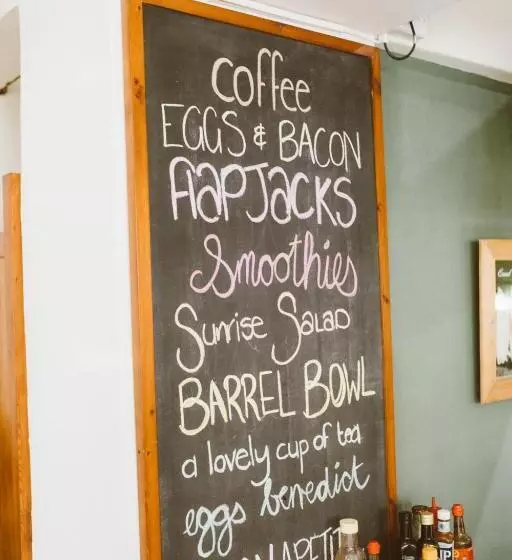 coffee
EGGS & BACON
flaPJACKS
Smoothies
Sunrise Salad
BARREL BOWL
a lovely cup of tea
eggs benedict